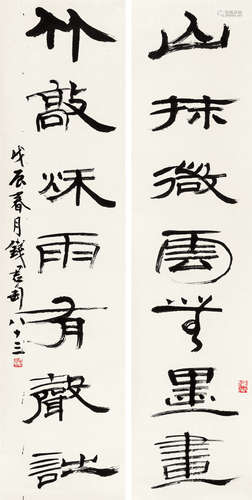 山抹微雲無墨畫
竹敲秋雨有聲詩
戊辰春月錢君匋八十三